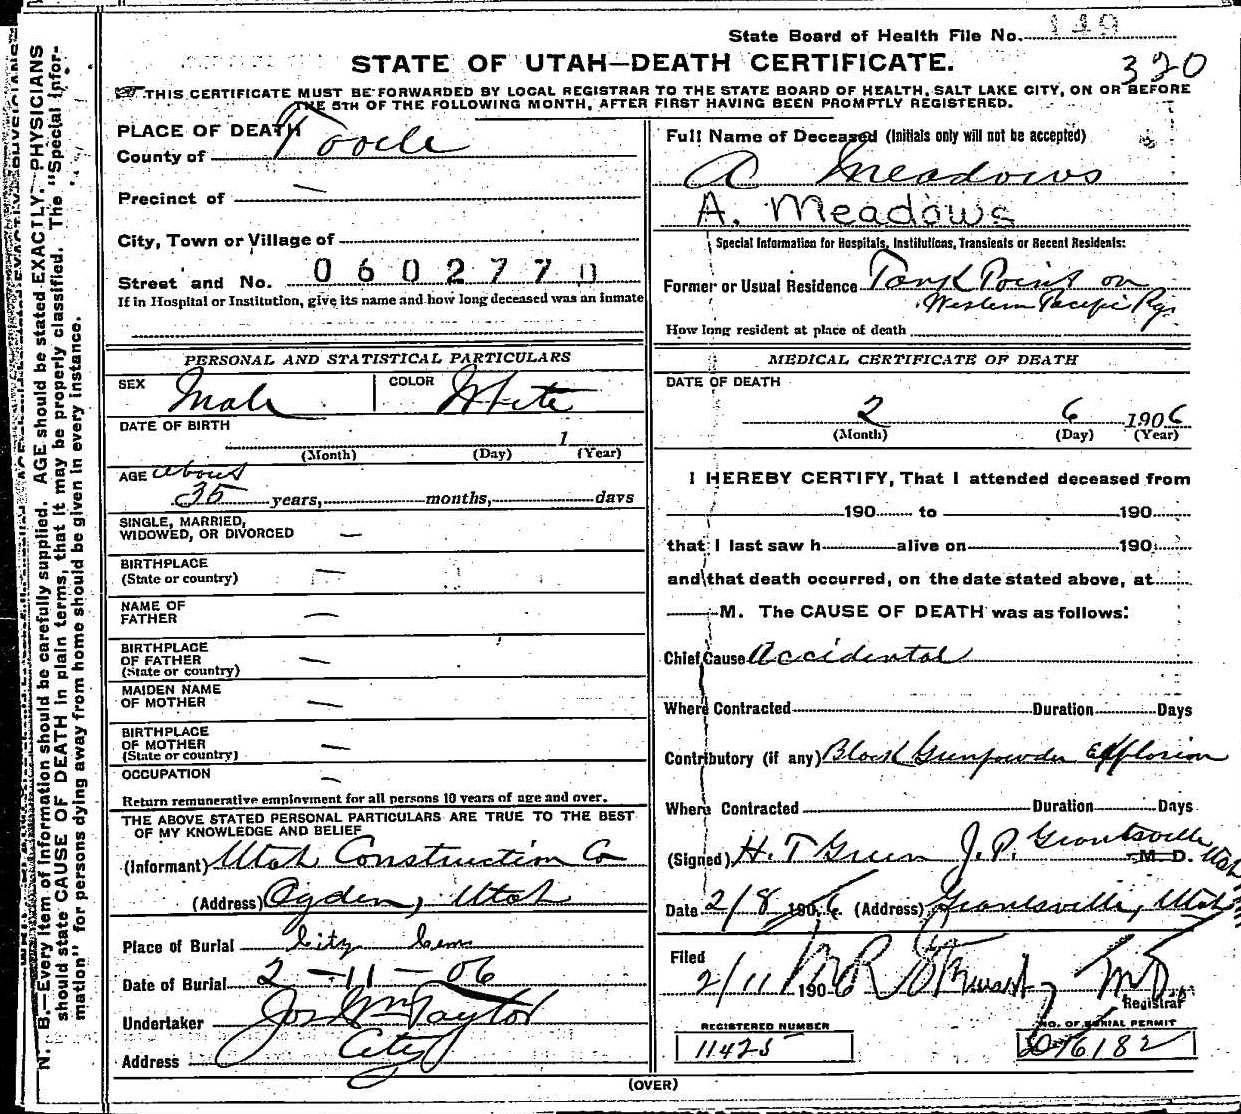 State Board of Health File No. 149
STATE OF UTAH—DEATH CERTIFICATE.
320
THIS CERTIFICATE MUST BE FORWARDED BY LOCAL REGISTRAR TO THE STATE BOARD OF HEALTH, SALT LAKE CITY, ON OR BEFORE
THE 5TH OF THE FOLLOWING MONTH, AFTER FIRST HAVING BEEN PROMPTLY REGISTERED.
PLACE OF DEATH
County of Tooele
Precinct of —
City, Town or Village of
Street and No. 0602770
If in Hospital or Institution, give its name and how long deceased was an inmate
Full Name of Deceased (Initials only will not be accepted)
A Meadows
A. Meadows
Special Information for Hospitals, Institutions, Transients or Recent Residents:
Former or Usual Residence Tank Point on
Western Pacific Ry.
How long resident at place of death
PERSONAL AND STATISTICAL PARTICULARS
SEX Male
COLOR White
DATE OF BIRTH
1
(Month) (Day) (Year)
AGE about
35 years, months, days
SINGLE, MARRIED,
WIDOWED, OR DIVORCED —
BIRTHPLACE
(State or country) —
NAME OF
FATHER —
BIRTHPLACE
OF FATHER
(State or country) —
MAIDEN NAME
OF MOTHER —
BIRTHPLACE
OF MOTHER
(State or country) —
OCCUPATION —
Return remunerative employment for all persons 10 years of age and over.
THE ABOVE STATED PERSONAL PARTICULARS ARE TRUE TO THE BEST
OF MY KNOWLEDGE AND BELIEF
(Informant) Utah Construction Co
(Address) Ogden, Utah
Place of Burial City Cem
Date of Burial 2—11—06
Undertaker Jos Wm Taylor
Address City
MEDICAL CERTIFICATE OF DEATH
DATE OF DEATH
2 6 1906
(Month) (Day) (Year)
I HEREBY CERTIFY, That I attended deceased from
190 to 190
that I last saw h alive on 190
and that death occurred, on the date stated above, at
M. The CAUSE OF DEATH was as follows:
Chief Cause Accidental
Where Contracted Duration Days
Contributory (if any) Black Gunpowder Explosion
Where Contracted Duration Days
(Signed) H. T Green J. P. Grantsville Utah
M. D.
Date 2/8 1906. (Address) Grantsville, Utah
Filed
2/11 1906 M R Stewart MD
Registrar
REGISTERED NUMBER
11425
NO. OF BURIAL PERMIT
16182
(OVER)
N. B.—Every item of information should be carefully supplied. AGE should be stated EXACTLY. PHYSICIANS
should state CAUSE OF DEATH in plain terms, that it may be properly classified. The "Special Infor-
mation" for persons dying away from home should be given in every instance.